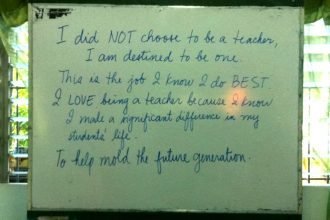 I did NOT choose to be a teacher,
I am destined to be one.
This is the job I know I do BEST.
I LOVE being a teacher because I know
I made a significant difference in my
students' life.
To help mold the future generation.